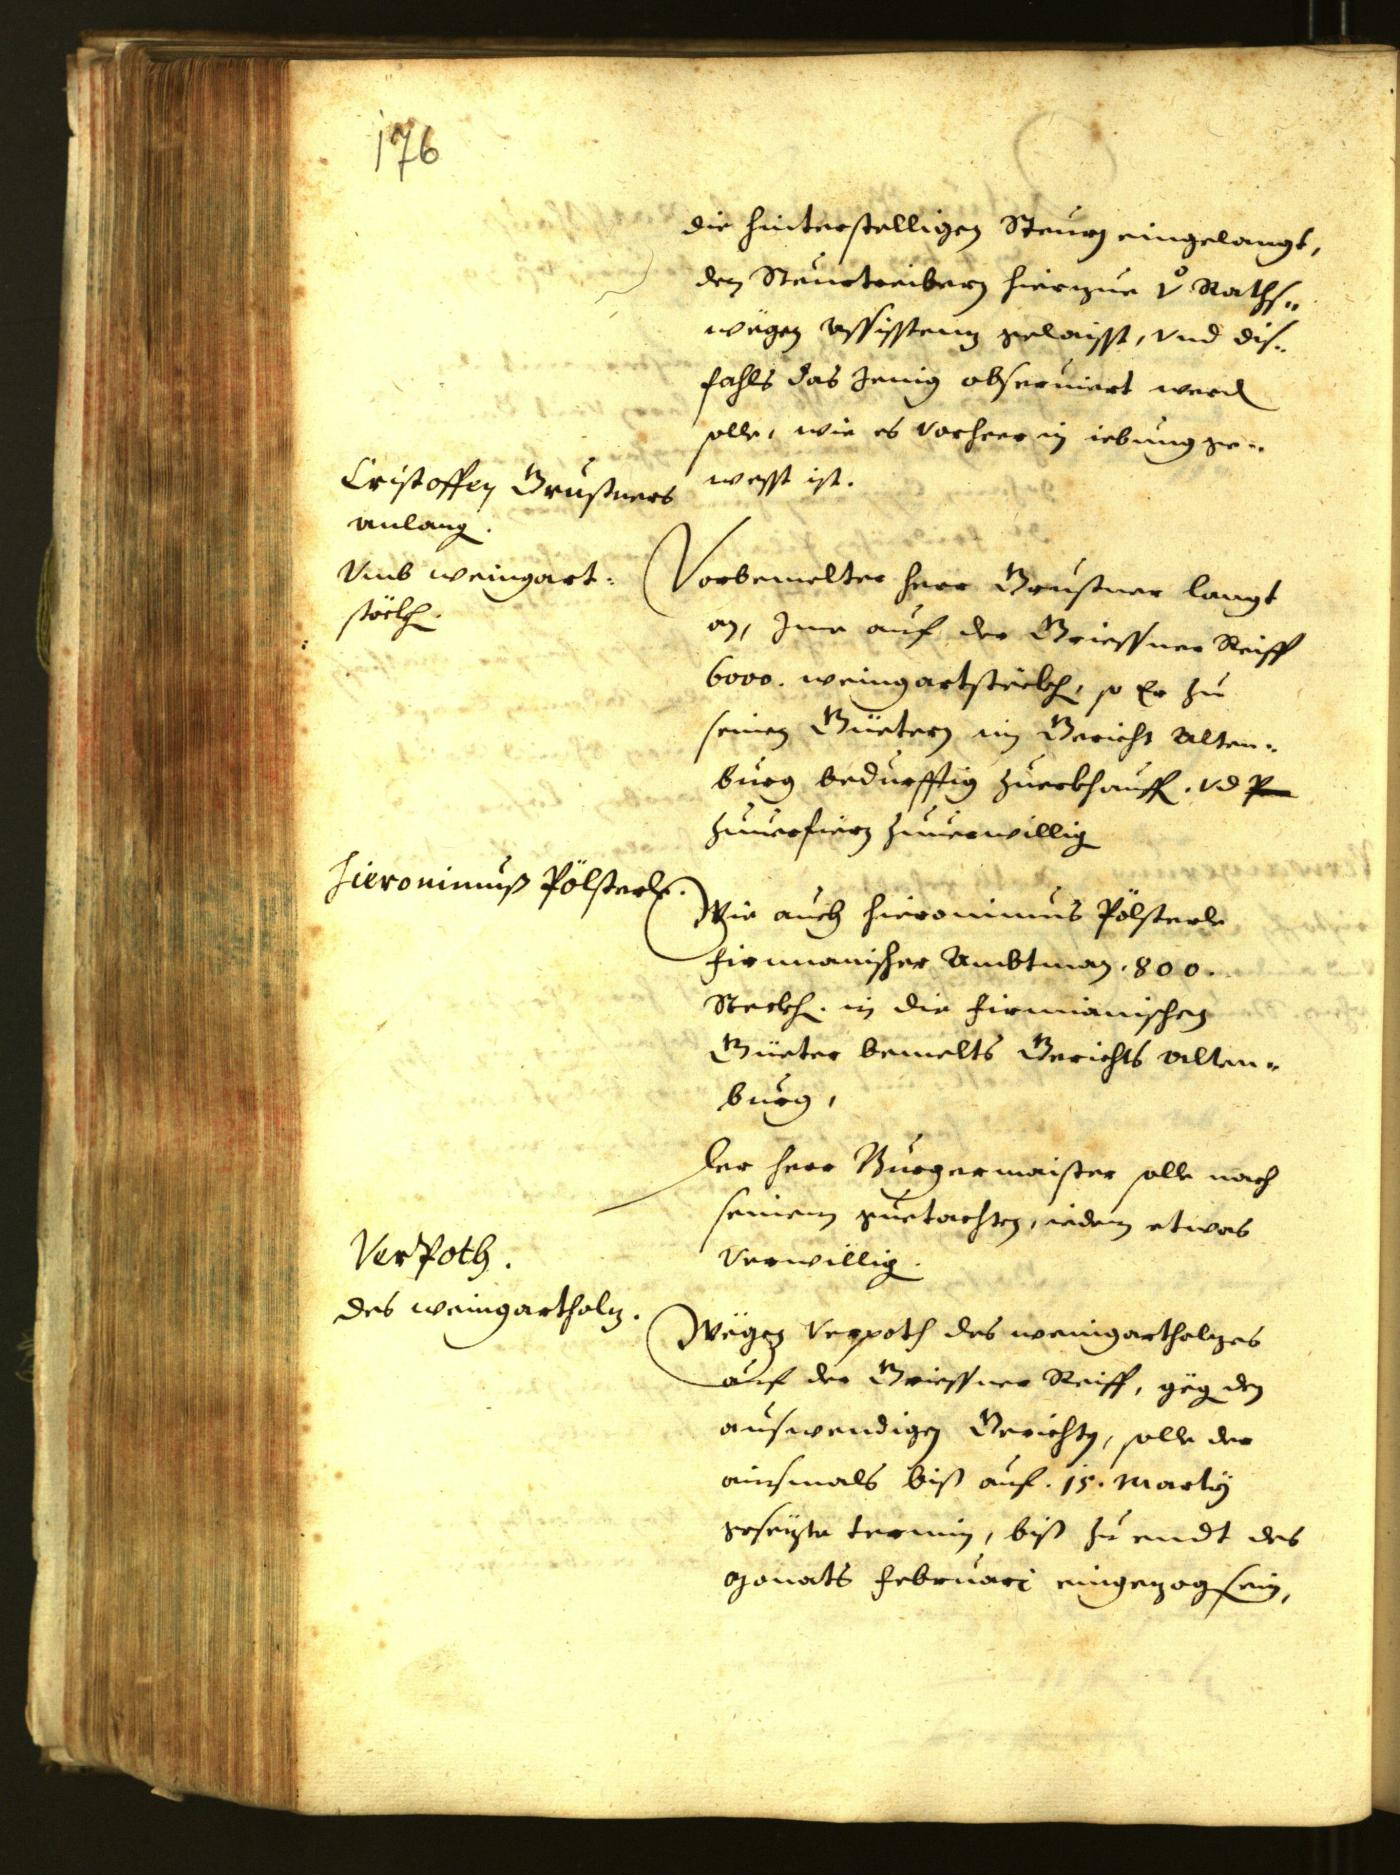 176
die hinterstelligen Steurn eingelangt,
den Steurtreibern hierzue vo Raths„
wëgen assisstenz gelaisst, vnd dis„
fahls das Jenig obseruiert werd
solle, wie es vorheer in iebung ge„
wesst ist.
Cristoffen Grußners
anlang.
Vmb weingart:
stöckh.
Vorbemelter herr Grußner langt
an, Jme auf der Griessner Reiff
6000. weingartstëckh, so Er zu
seinen Güetern im Gericht Alten„
burg bedürfftig zuerkhauff. vd
zuuerfiern zuuerwillig
Hieronimuß Pölsterle.
Wie auch Hieronimus Pölsterle
firmianischer Ambtman. 800.
Steckh. in die firmianischen
Güeter bemelts Gerichts Alten„
burg,
der herr Burgermaister solle nach
seinem guetachten, iedem etwas
verwillig.
VerPoth.
des weingartholz.
Wëgen Verpoth des weingartholzes
auf der Griessner Reiff, gëg den
auswendigen Gerichtn, solle der
ainsmals biß auf. 15. Martij
gesezte termin, biß zu endt des
Monats Februari eingezog sein,